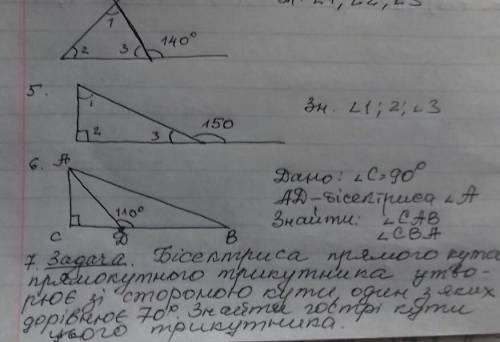 Зн. ∠1; ∠2; ∠3
1
2 3 140°
5.
1
2 3 150
Зн. ∠1; 2; ∠3
6. A
110°
C D B
Дано: ∠C=90°
AD-бісектриса ∠A
Знайти: ∠CAB
∠CBA
7. Задача. Бісектриса прямого кута
прямокутного трикутника утво-
рює зі стороною кути, один з яких
дорівнює 70°. Знайти гострі кути
цього трикутника.